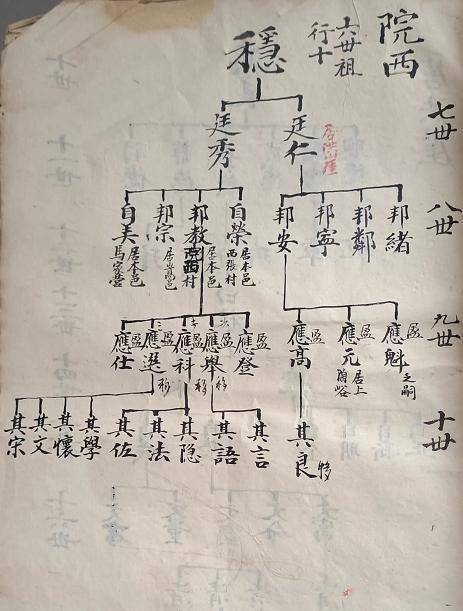 院西
六世祖
行十
穩
七世
廷仁
居洪山崖
廷秀
八世
邦緒
邦鄰
邦寧
邦安
自榮
居本邑
西張村
邦教
居本邑
院西村
邦宗
自美
居本邑
馬家營
九世
應魁
盈
之嗣
應元
盈
居上
應高
盈
應登
盈
應舉
盈
次
移
應科
盈
子
移
應選
盈
三
移
應仕
盈
十世
其良
移
其言
其語
其隐
其法
其佐
其學
其懷
其文
其宗